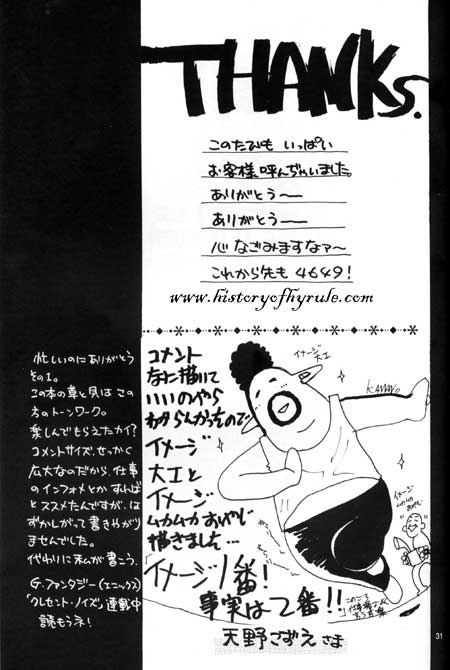 THANKS.
このたびも いっぱい
お客様、呼んぢゃいました。
ありがとう──
ありがとう──
心 なごみますなァ〜
これから先も 4649!
www.historyofhyrule.com
忙しいのにありがとう
その1。
この本の草と貝はこの
方のトーンワーク。
楽しんでもらえたカイ?
コメントサイズ、せっかく
広大なのだから、仕事
のインフォメとかすれば
とススメたんですが、は
ずかしがって書きやがり
ませんでした。
代わりに私が書こう。
G・ファンタジー(エニックス)
「クレセント・ノイズ」連載中
読もうネ!
コメント
なに描いて
いいのやら
わからんかったので
イメージ
大工と
イメージ
ムカムカおやじ
描きました…
イメージ1番!
事実は2番!!
天野さずえ さま
イメージ
大工
K.AMANO
イメージ
ムカムカおやじ
31